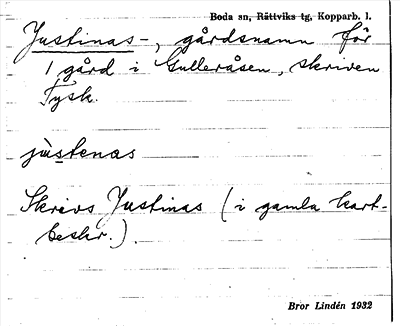 Boda sn, Rättviks tg, Kopparb. l.
Justinas-, gårdsnamn för
1 gård i Gulleråsen, skriven
Tysk.
jùstenas
Skrivs Justinas (i gamla kart-
beskr.).
Bror Lindén 1932